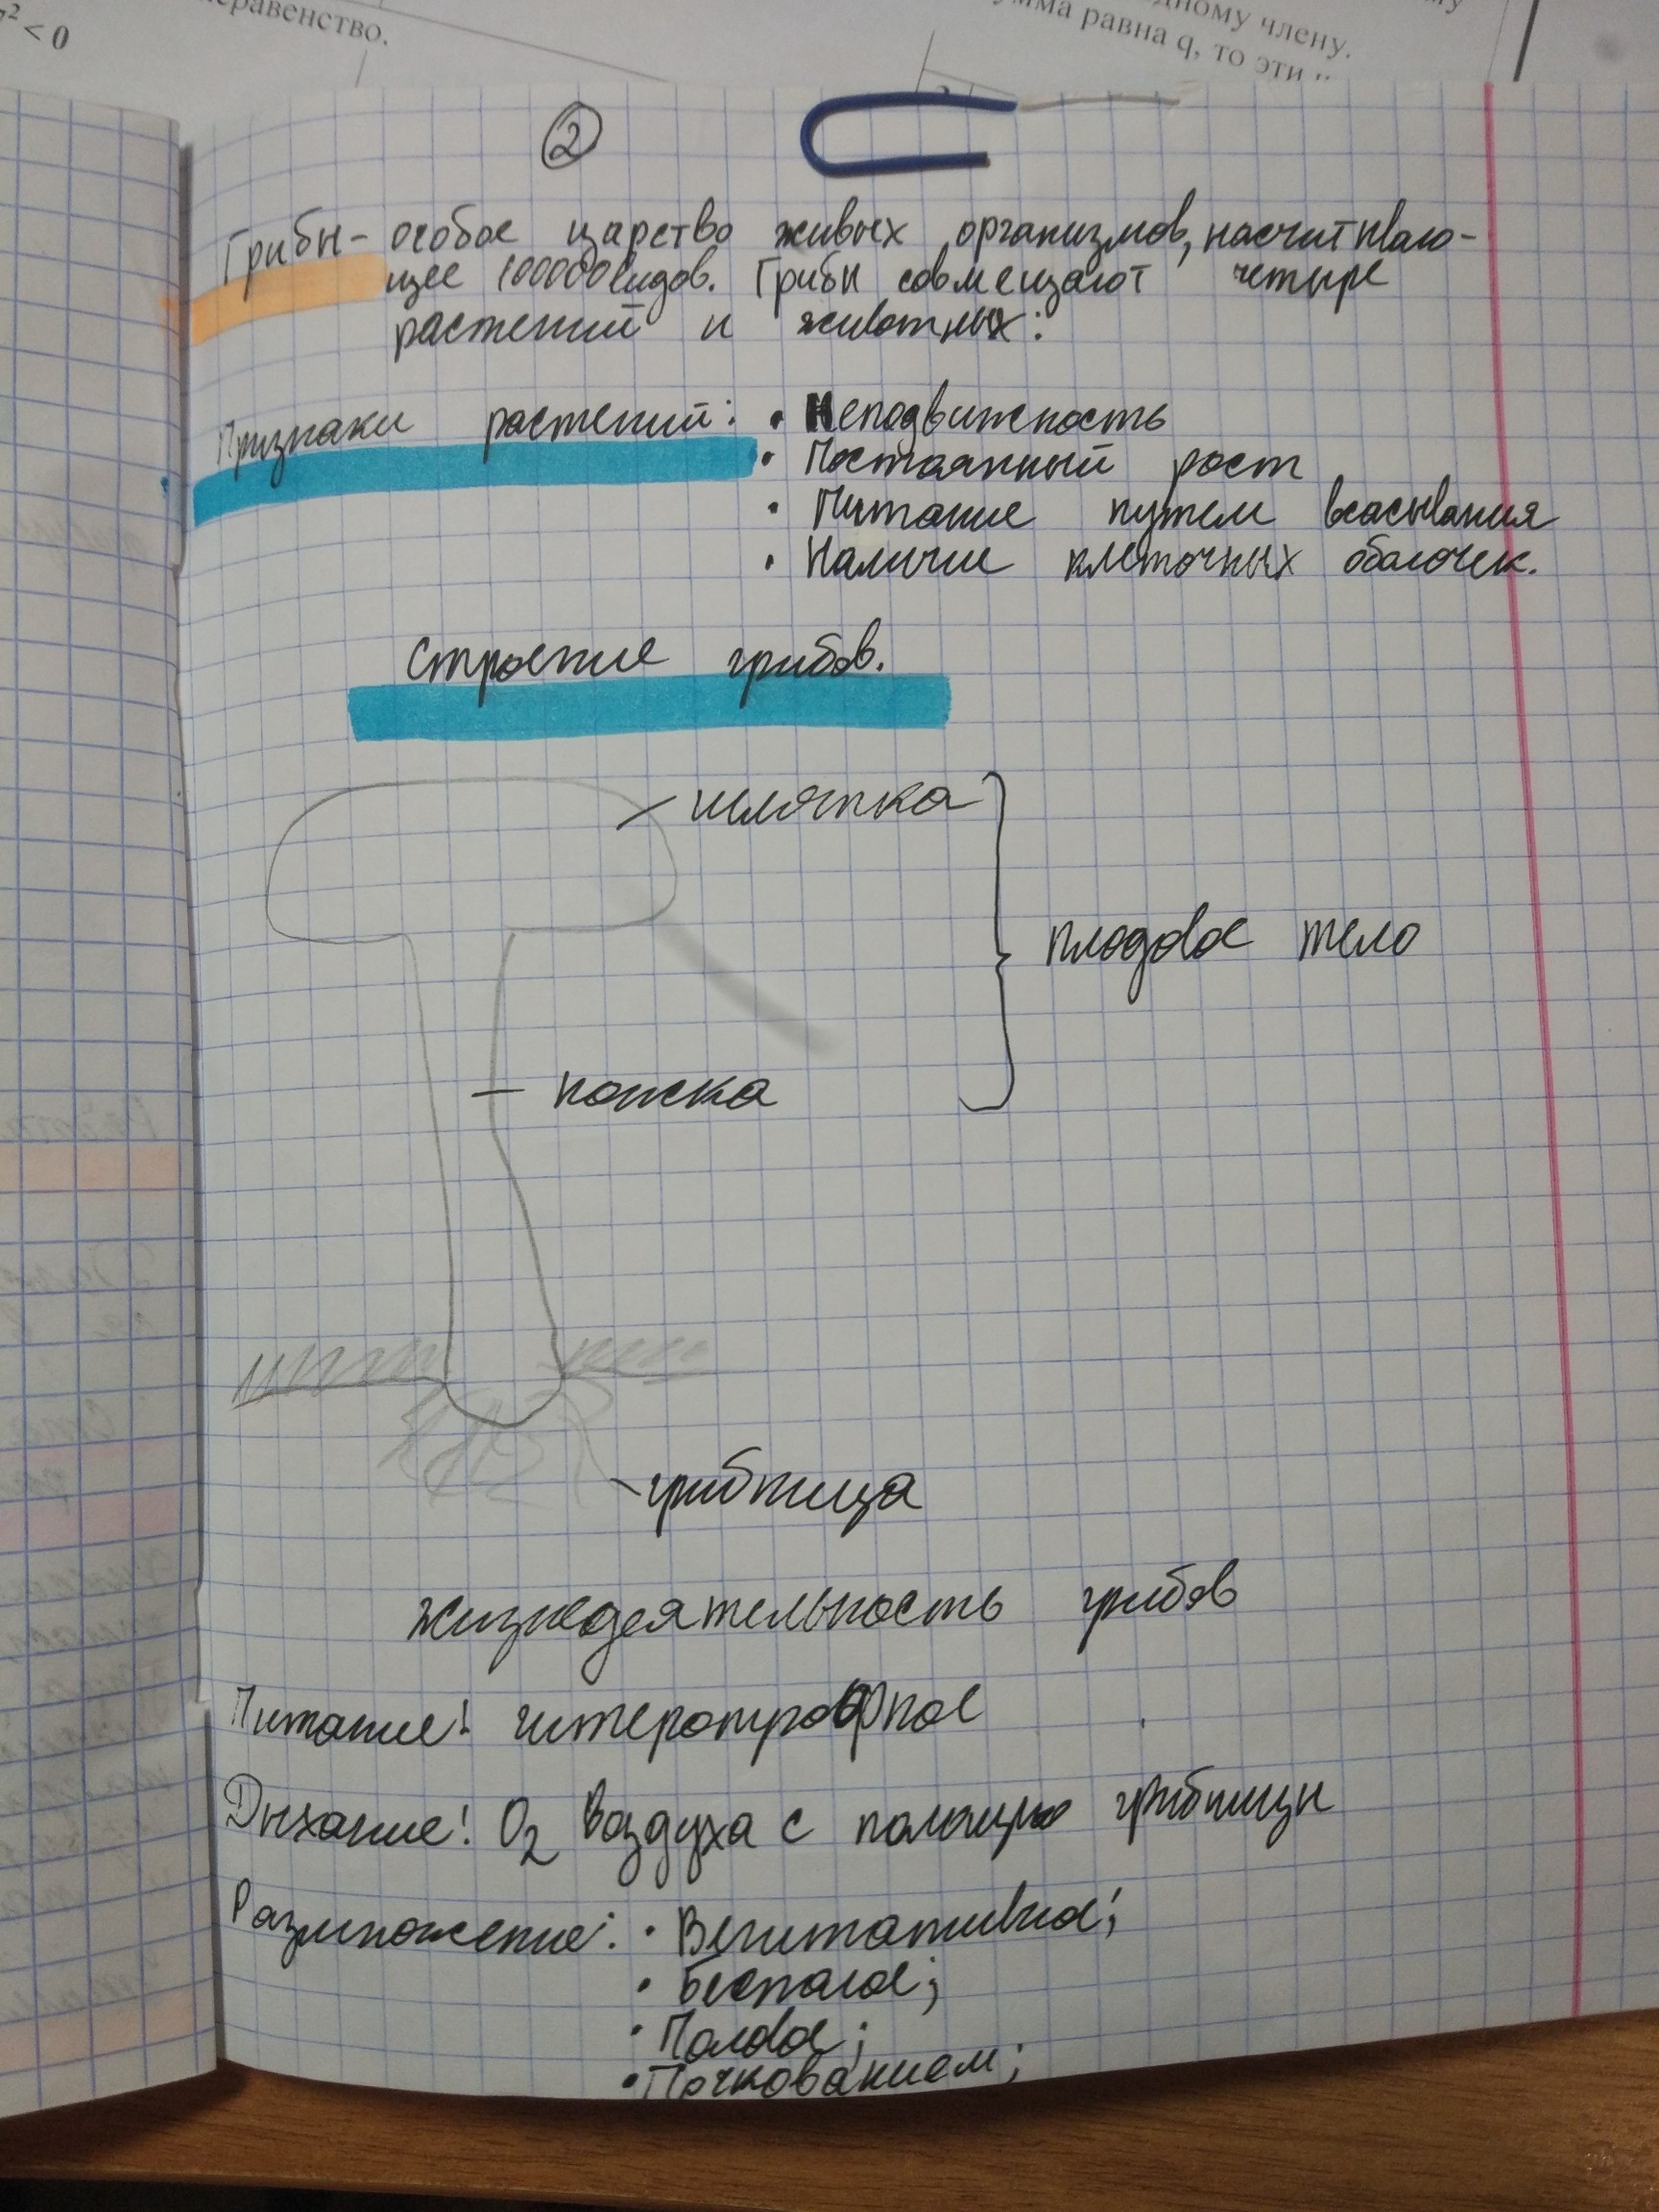 ² < 0
равенство.
дному члену.
умма равна q, то эти
2
Грибы - особое царство живых организмов, насчитываю-
щее 100000 видов. Грибы совмещают четыре
растений и животных:
Признаки растений: • Неподвижность
• Постоянный рост
• Питание путем всасывания
• Наличие клеточных оболочек.
Строение грибов.
шляпка
плодовое тело
ножка
грибница
Жизнедеятельность грибов
Питание: гитеротрофное
Дыхание: O₂ воздуха с помощью грибницы
Размножение: • Вегитативное;
• Бесполое;
• Половое;
• Почкованием;